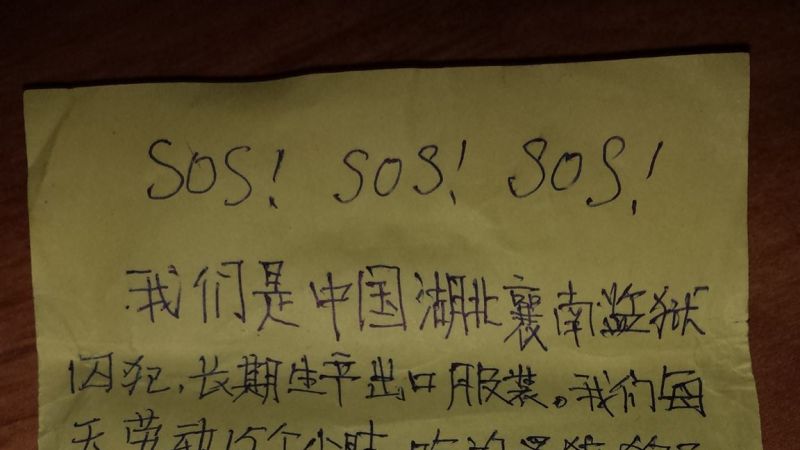 SOS! SOS! SOS!
我们是中国湖北襄南监狱
囚犯,长期生产出口服装。我们每
天劳动15个小时